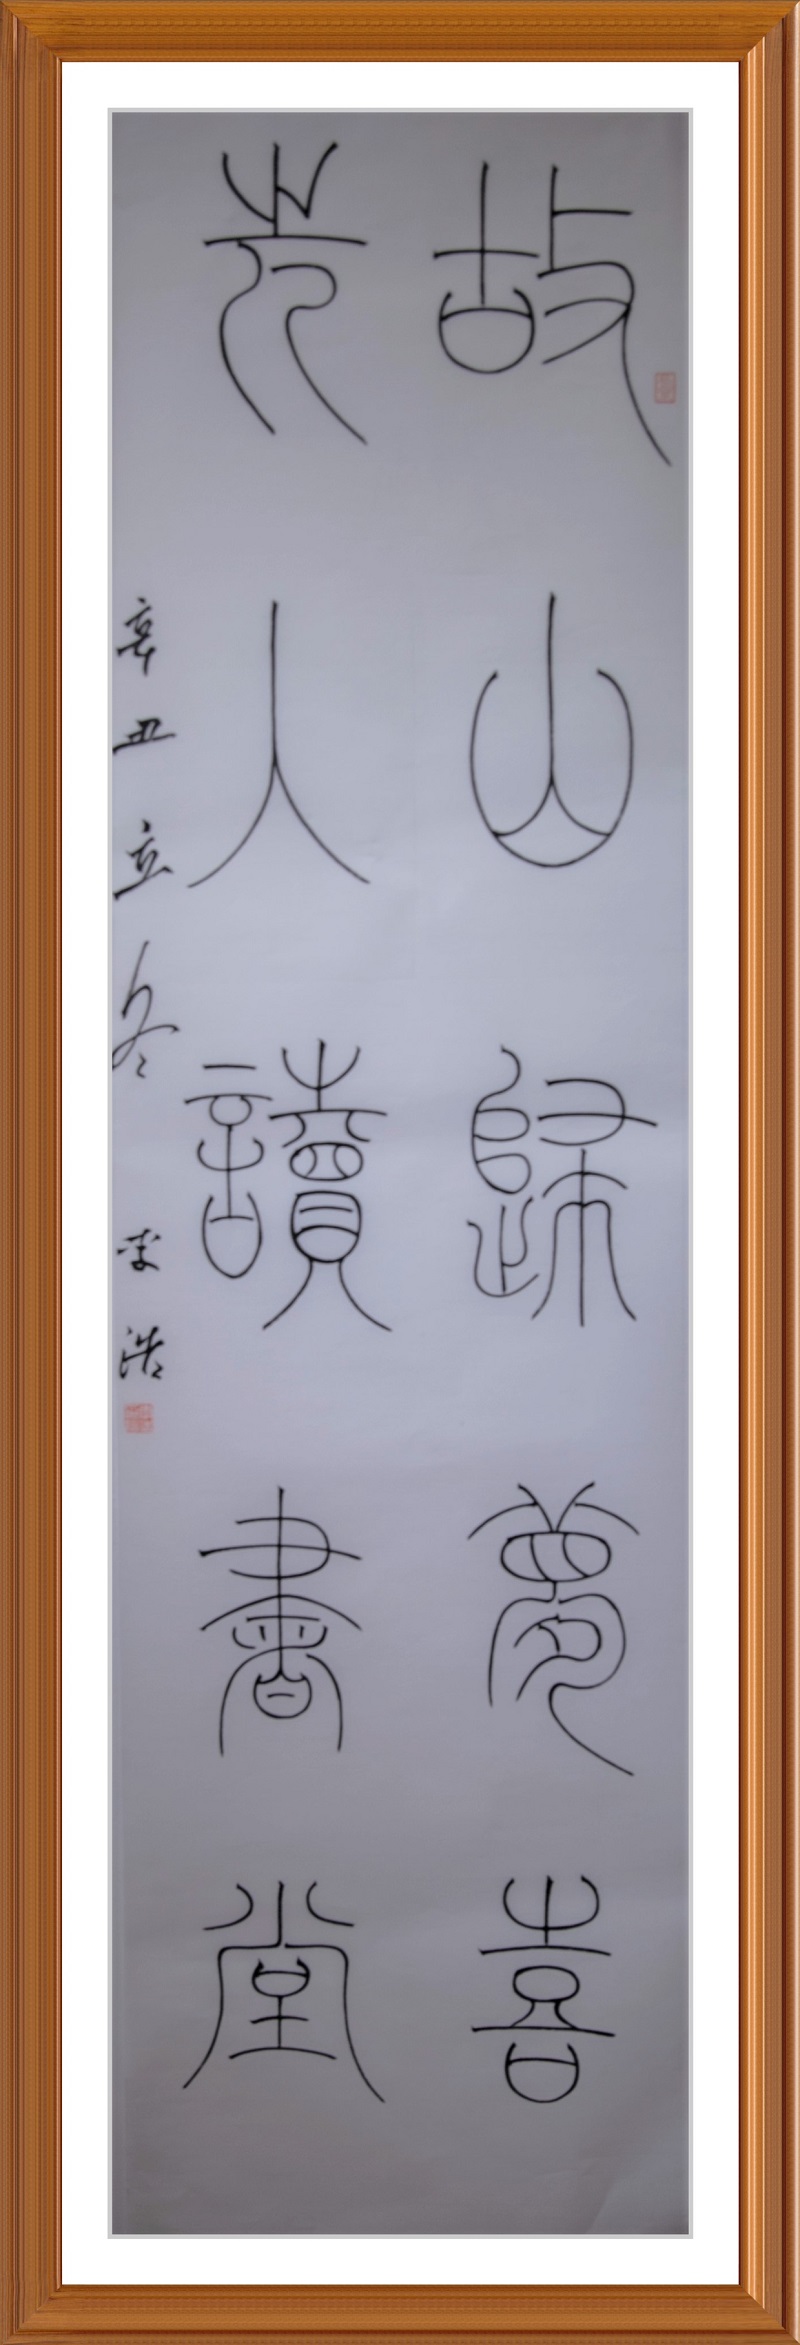 故山歸夢喜
先人讀書堂
辛丑立冬 李浩